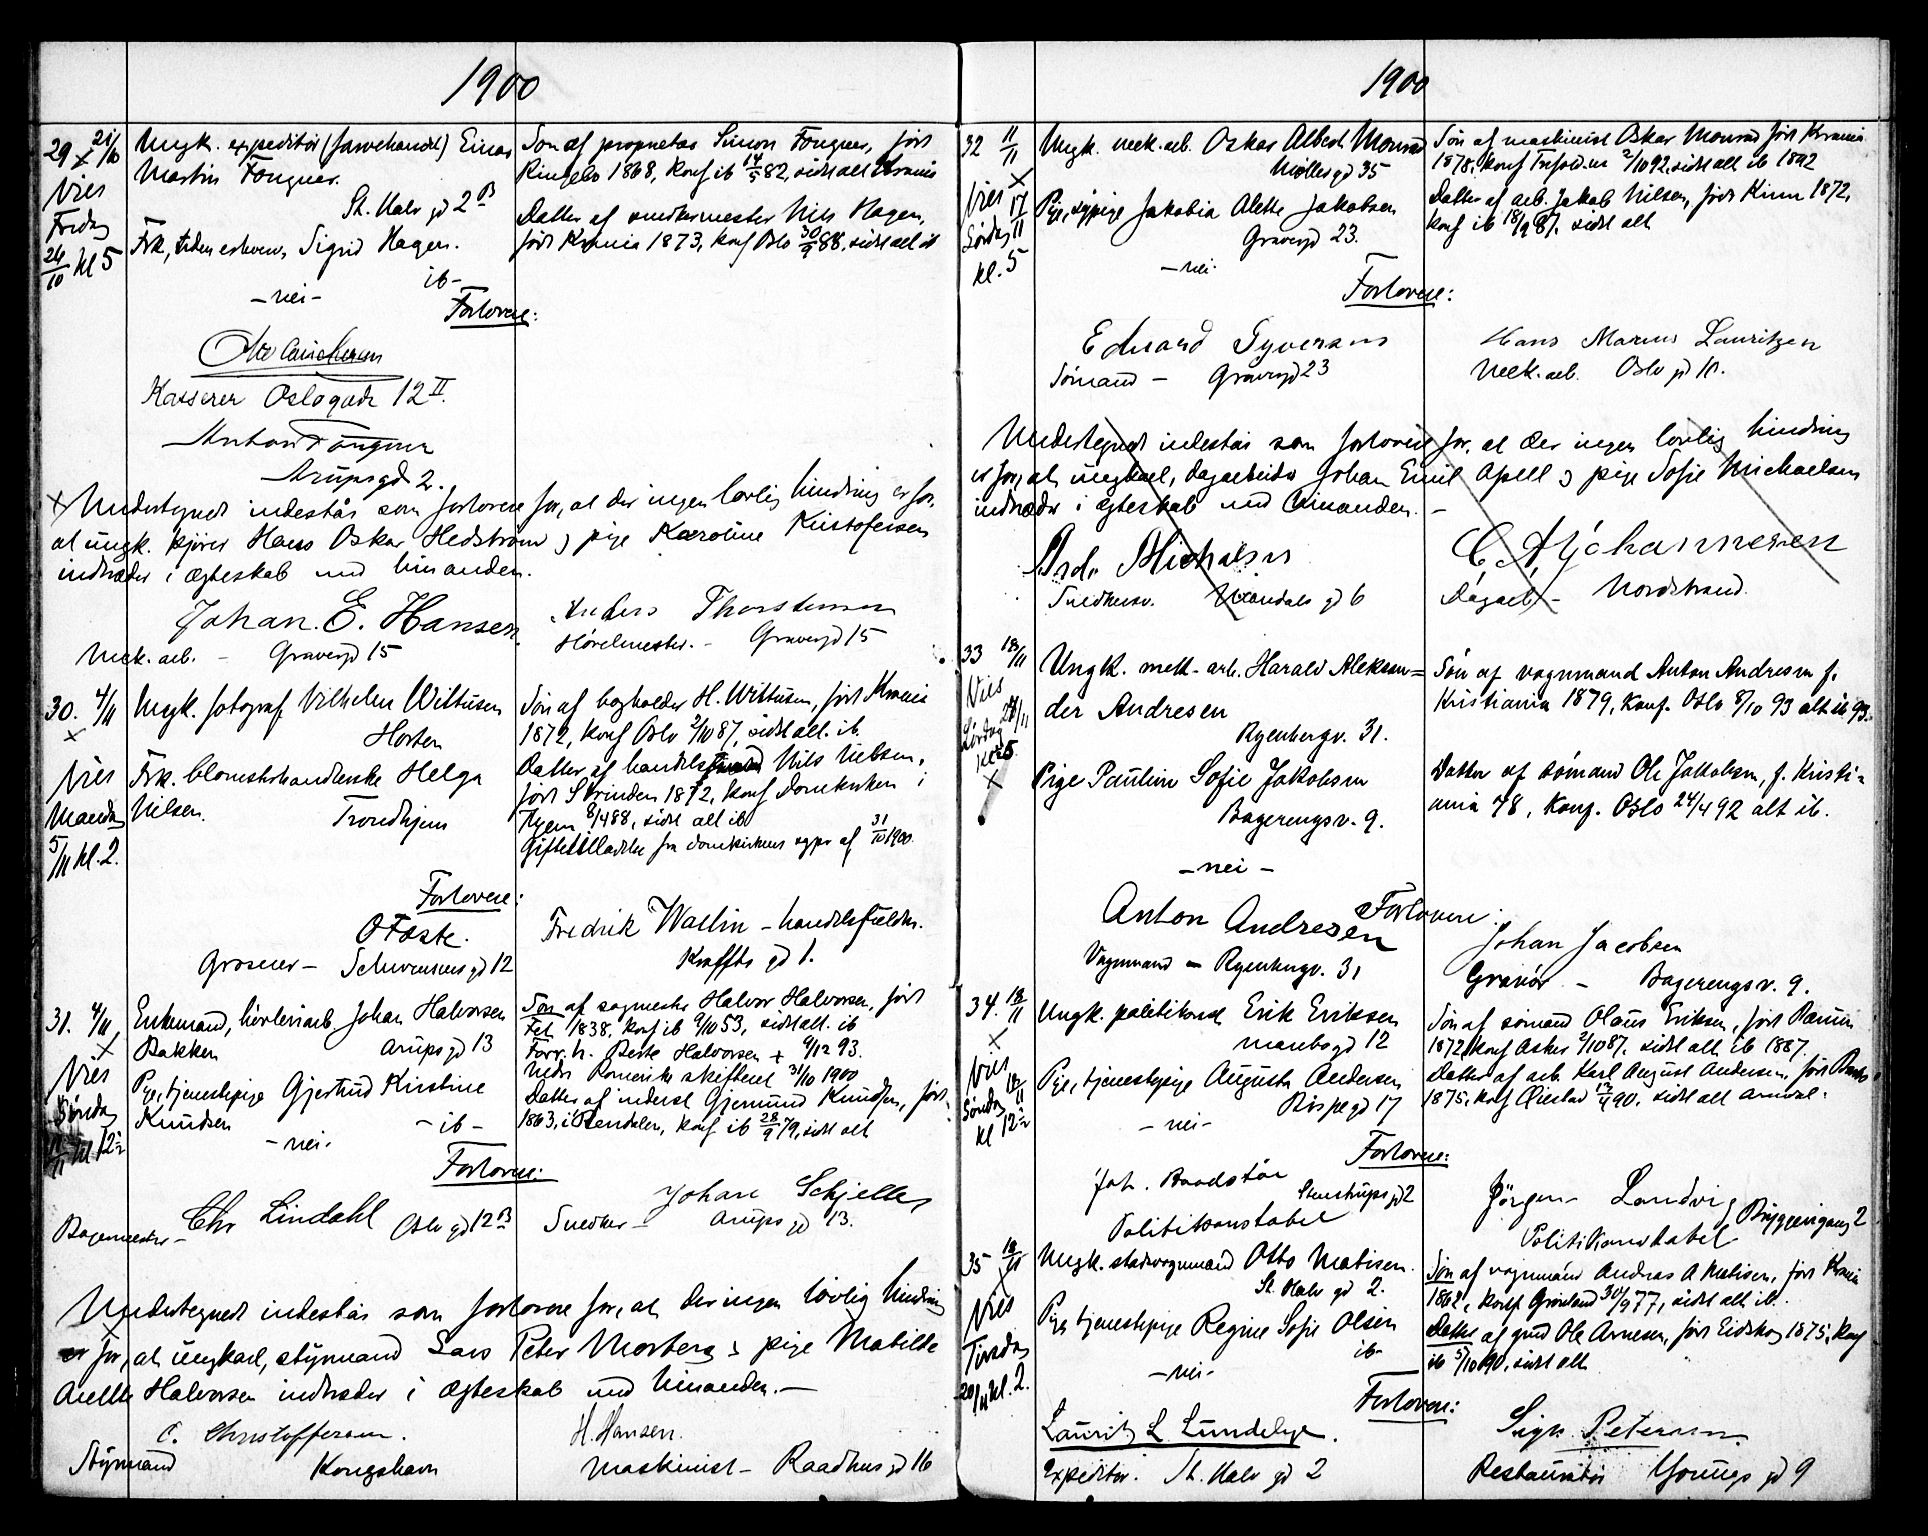 1900
29 21/10 Ungk. expeditør (farvehandel) Einar
Martin Fougner.
St. Halv gd 2B
Son af proprietær Simon Fougner, født
Ringebo 1868, konf ib 14/5 82, sidst all Krania
Vies
Fredag
24/10 kl 5
Frk, uden erhverv, Sigrid Hagen.
ib-
-nei-
Datter af snedkermester Nils Hagen,
født Krania 1873, konf Oslo 30/9 88, sidst all ib
Forlovere:
Kasserer Oslogade 12 II.
Anton Fougner
Arupsgd 2.
x Undertegnede indestår som forlovere for, at der ingen lovlig hindring er for,
at ungk. kjører Hans Oskar Hedström & pige Karoline Kristofersen
indtræder i ægteskab med hinanden.
Johan. E. Hansen.
Mek. arb. - Gravergd 15
Anders Thorstensen
Gravergd 15
30. 4/11 Ungk. fotograf Vilhelm Wittusen
Horten
Søn af bogholder H. Wittusen, født Krania
1872, konf Oslo 2/10 87, sidst all. ib.
Vies
Mandag
5/11 kl. 2.
Frk. blomsterhandlerske Helga
Nilsen.
Trondhjem
Datter af handelsfuldm Nils Nielsen,
født Strinden 1872, konf Domkirken i
8/4 88, sidst all ib
31/10 1900.
Forlovere:
O Foste.
Grosserer - Schweensensgd 12
Fredrik Wallin - handelsfuldm.
Kraffts gd 1.
31. 4/11 Enkemand, høvleriarb. Johan Halvorsen
Bakken
Arups gd 13
Søn af sagmester Halvor Halvorsen, født
Fet 1838, konf ib 9/10 53, sidst all. ib
Forr. h. Berte Halvorsen + 9/12 93.
Nedre Romerike skifteret 31/10 1900
Vies
Søndag
kl 12½
Pige, tjenestepige Gjertrud Kirstine
Knudsen
-ib-
-nei-
Datter af inderst Gjermund Knudsen, født
1863, i Rendalen, konf ib 28/9 79, sidst all
Forlovere:
Bagermester - Chr Lindahl Oslo gd 12B
Johan Schjelle
Snedker - Arups gd 13.
Undertegnede indestår som forlovere for, at der ingen lovlig hindring
er for, at ungkarl, styrmand Lars Peter Morberg & pige Matilde
Anette Halvorsen indtræder i ægteskab med hinanden.-
C. Christoffersen.
Styrmand Kongshavn
H. Hansen.
Maskinist - Raadhusgd 16
1900
32 11/11 Ungk. mek. arb. Oskar Albert Monrad
Møllergd 35
Søn af maskinist Oskar Monrad født Krania
1878, konf Trefold.m 2/10 92, sidst all ib 1892
Vies
17/11
Lørdag
kl. 5
Pige, sypige Jakobia Alette Jakobsen
Gravergd 23.
-nei-
Datter af arb. Jakob Nilsen, født Kinn 1872,
konf ib 18/9 87, sidst all
Forlovere:
Eduard Syversen
Sømand - Gravergd 23
Hans Marius Lauritzen
Mek. arb. Oslo gd 10.
Undertegnede indestår som forlovere for, at der ingen lovlig hindring
er for, at ungkarl, dagarbeider Johan Emil Apell & pige Sofie Michaelsen
indtræder i ægteskab med hinanden. -
Snedkersv. gd 6
C. A. Johannesen
Dagarb - Nordstrand.
33 18/11 Ungk. mek-arb. Harald Aleksan=
der Andresen
Ryenbergv. 31.
Søn af vognmand Anton Andresen f.
Kristiania 1879, konf. Oslo 8/10 93 alt ib 93.
Vies
Lørdag 24/11
kl 5
Pige Pauline Sofie Jakobsen
Bagerengsv. 9.
-nei-
Datter af sømand Ole Jakobsen, f. Kristi=
ania 78, konf. Oslo 24/4 92 alt ib.
Forlovere:
Anton Andresen
Vognmand - Ryenbergv. 31
Johan Jacobsen
Gravør - Bagerengsv. 9.
34. 18/11 Ungk. politikonst Erik Eriksen
Munkebogd 12
Søn af sømand Olaus Eriksen, født
1872, konf Asker 2/10 87, sidst all ib 1887.
Vies
Søndag 18/11
kl 12½
Pige, tjenestepige Augusta Andersen
Bispegd 17
-nei-
Datter af arb. Karl August Andersen, født
1875, konf Øiestad 90, sidst all Arendal.
Forlovere:
Joh. Baadstø
Stenstrupsgd 2
Politikonstabel
Jørgen Landvig Byggerigang 2
Politikonstabel
35 18/11 Ungk. stadsvognmand Otto Matisen.
St. Halv gd 2.
Søn af vognmand Andras A Matisen, født Krania
1862, konf Grønland 30/9 77, sidst all ib.
Vies
Tirsdag
20/11 kl. 2.
Pige, tjenestepige Regine Sofie Olsen
ib-
-nei-
Datter af gmd Ole Arnesen, født Eidskog 1875, konf
ib 5/10 90, sidst all
Forlovere:
Laurits L Lundelye.
Expeditør. St. Halv gd 2
Sign Petersen
Restauratør Youngs gd 9